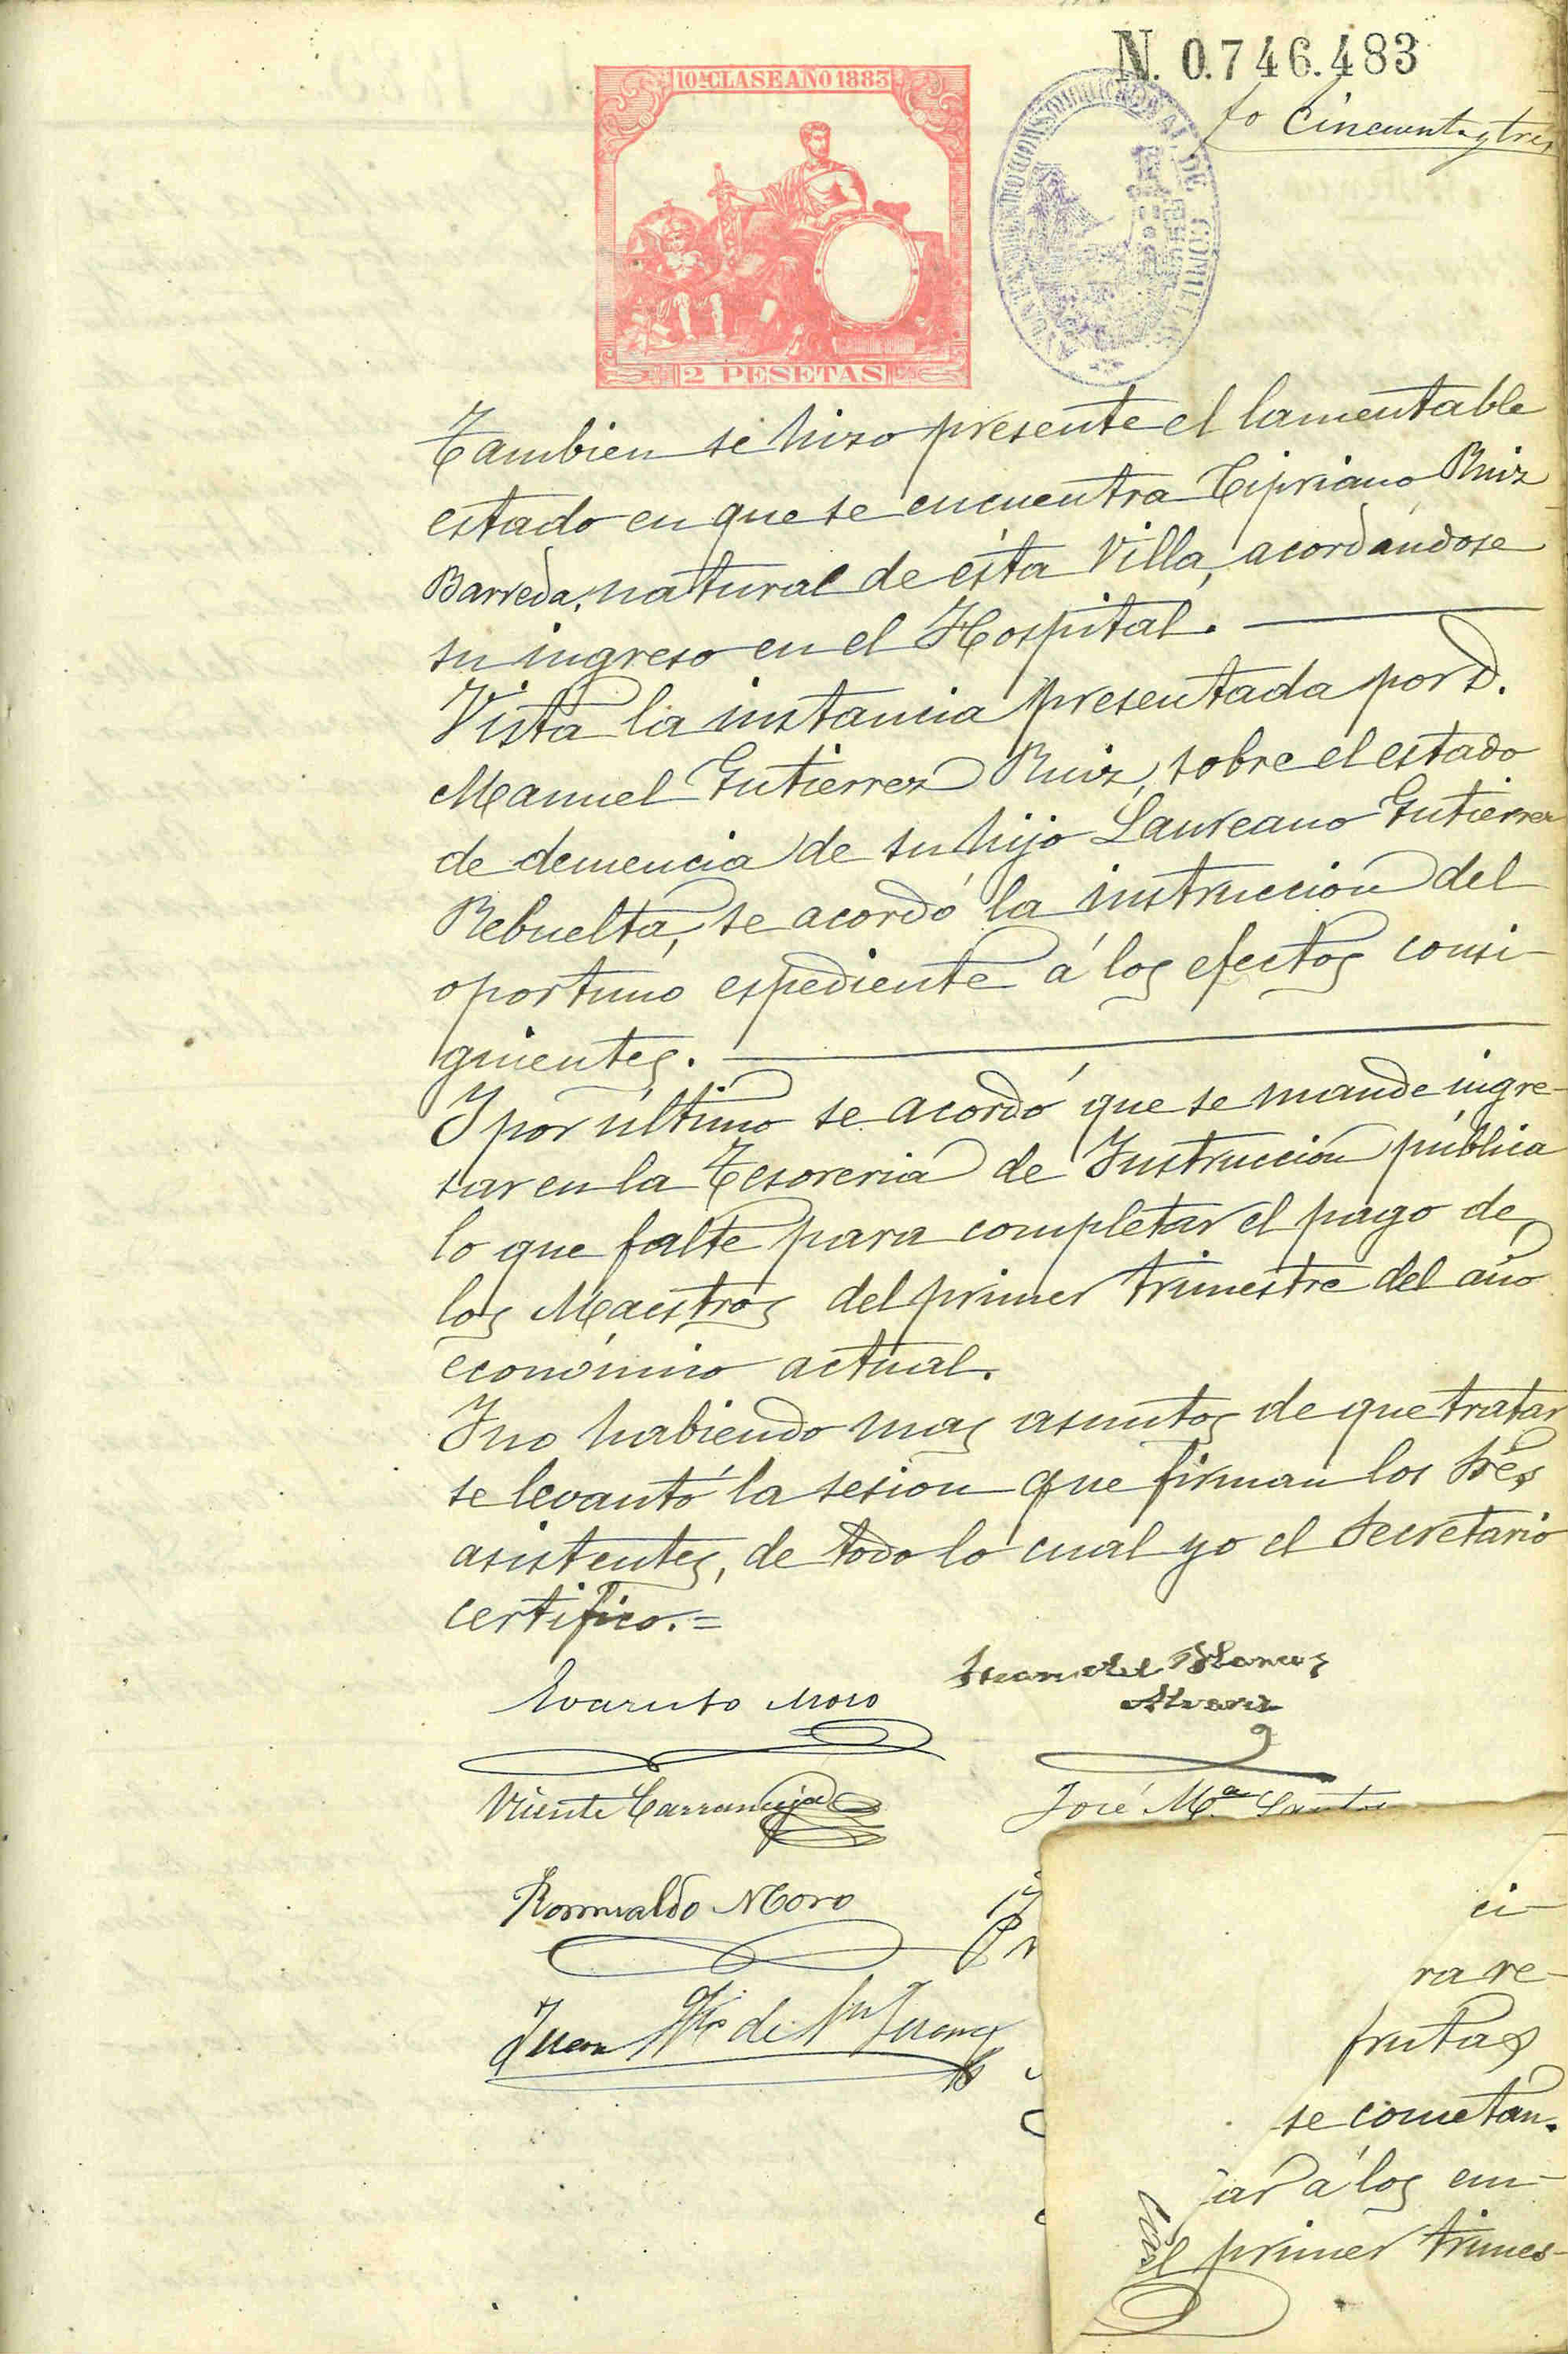 N. 0.746.483
fo Cincuenta y tres
10ª CLASE AÑO 1883
2 PESETAS
AYUNTAMIENTO CONSTITUCIONAL DE COMILLAS
Tambien se hizo presente el lamentable
estado en que se encuentra Cipriano Ruiz
Barreda, natural de ésta Villa, acordándose
su ingreso en el Hospital.
Vista la instancia presentada por D.
Manuel Gutierrez Ruiz, sobre el estado
de demencia de su hijo Laureano Gutierrez
Rebuelta, se acordó la instruccion del
oportuno espediente á los efectos consi-
guientes.
Y por último se acordó que se mande ingre-
sar en la Tesoreria de Instruccion pública
lo que falte para completar el pago de
los Maestros del primer trimestre del año
económico actual.
Y no habiendo mas asuntos de que tratar
se levantó la sesion que firman los Sres
asistentes, de todo lo cual yo el Secretario
certifico.=
Evaristo Moro
Juan del Alvarez
Vicente Carranceja
José Mª Santos
Romualdo Moro
Juan de Juana
ci-
ra re-
frutas
se cometan.
ar á los em-
el primer trimes-